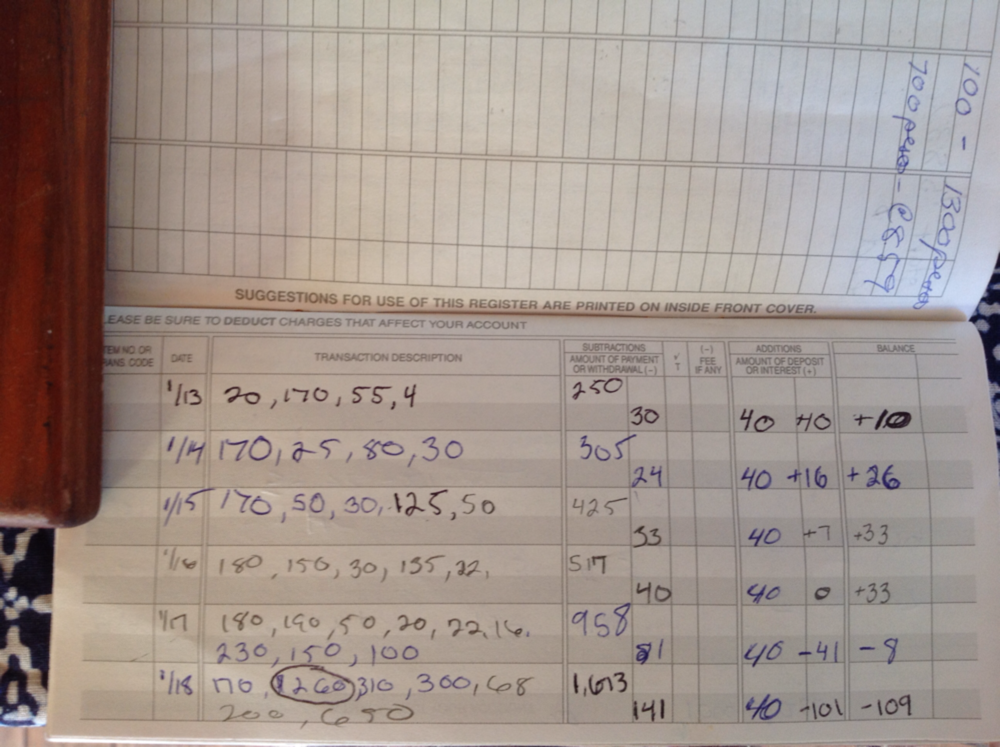 100 - 1300 pesos
700 pesos - @8559
SUGGESTIONS FOR USE OF THIS REGISTER ARE PRINTED ON INSIDE FRONT COVER.
EASE BE SURE TO DEDUCT CHARGES THAT AFFECT YOUR ACCOUNT
TEM NO. OR RANS. CODE DATE TRANSACTION DESCRIPTION SUBTRACTIONS AMOUNT OF PAYMENT OR WITHDRAWAL (-) ✓ T (-) FEE IF ANY ADDITIONS AMOUNT OF DEPOSIT OR INTEREST (+) BALANCE
1/13 20, 170, 55, 4 250
30 40 +10 +10
1/14 170, 25, 80, 30 305
24 40 +16 +26
1/15 170, 50, 30, 125, 50 425
33 40 +7 +33
1/16 180, 150, 30, 135, 22, 517
40 40 0 +33
1/17 180, 190, 50, 20, 22, 16, 958
230, 150, 100 81 40 -41 -8
1/18 170, 1260, 310, 300, 68 1,613
200, 650 141 40 -101 -109